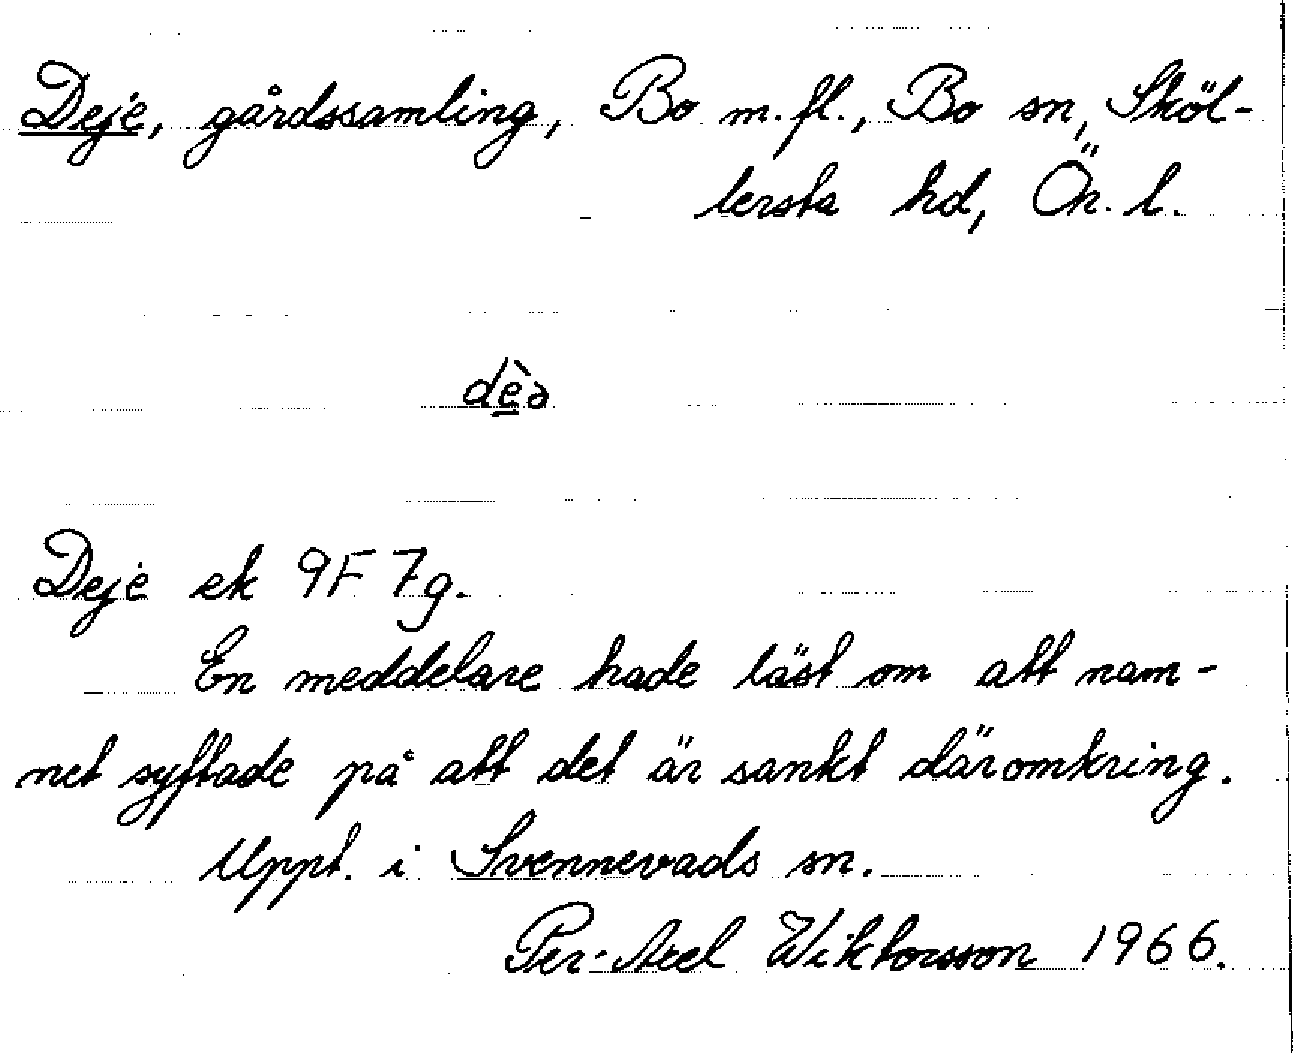 Deje, gårdssamling, Bo m.fl., Bo sn, Sköl-
lersta hd, Ör. l.
dèa
Deje ek 9F 7g.
En meddelare hade läst om att nam-
net syftade på att det är sankt däromkring.
Uppt. i Svennevads sn.
Per-Axel Wiktorsson 1966.